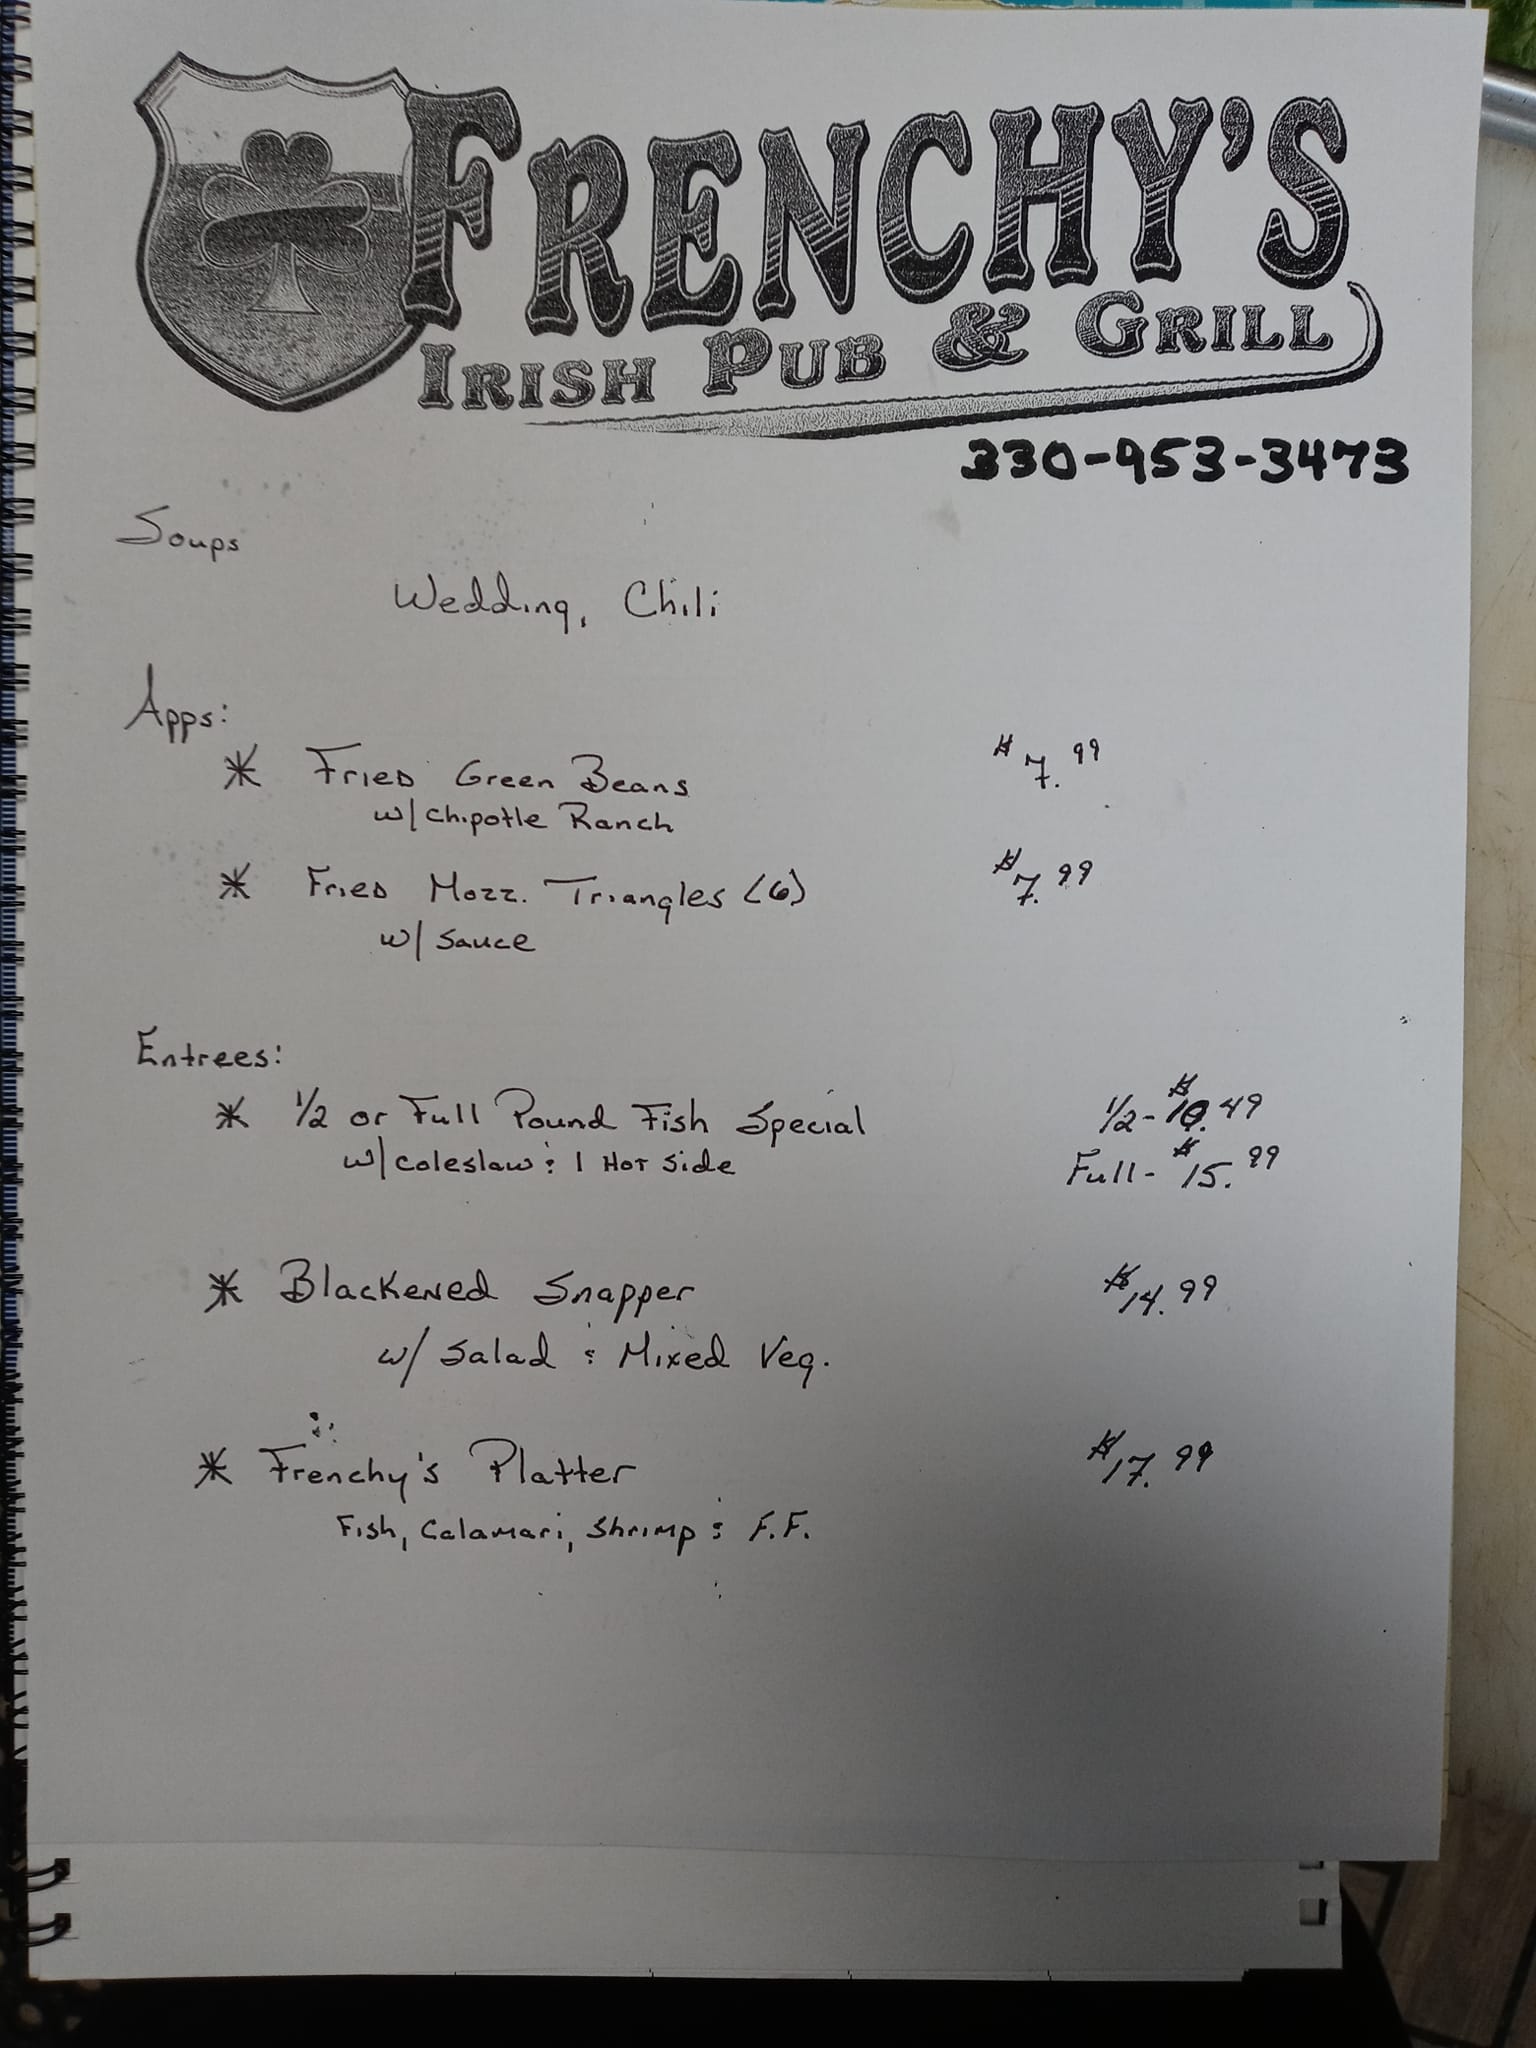 FRENCHY'S
IRISH PUB & GRILL
330-953-3473
Soups
Wedding, Chili
Apps:
* Fried Green Beans $7.99
w/ Chipotle Ranch
* Fried Mozz. Triangles (6) $7.99
w/ Sauce
Entrees:
* 1/2 or Full Pound Fish Special 1/2 - $10.49
w/ Coleslaw & 1 Hot Side Full - $15.99
* Blackened Snapper $14.99
w/ Salad & Mixed Veg.
* Frenchy's Platter $17.99
Fish, Calamari, Shrimp & F.F.